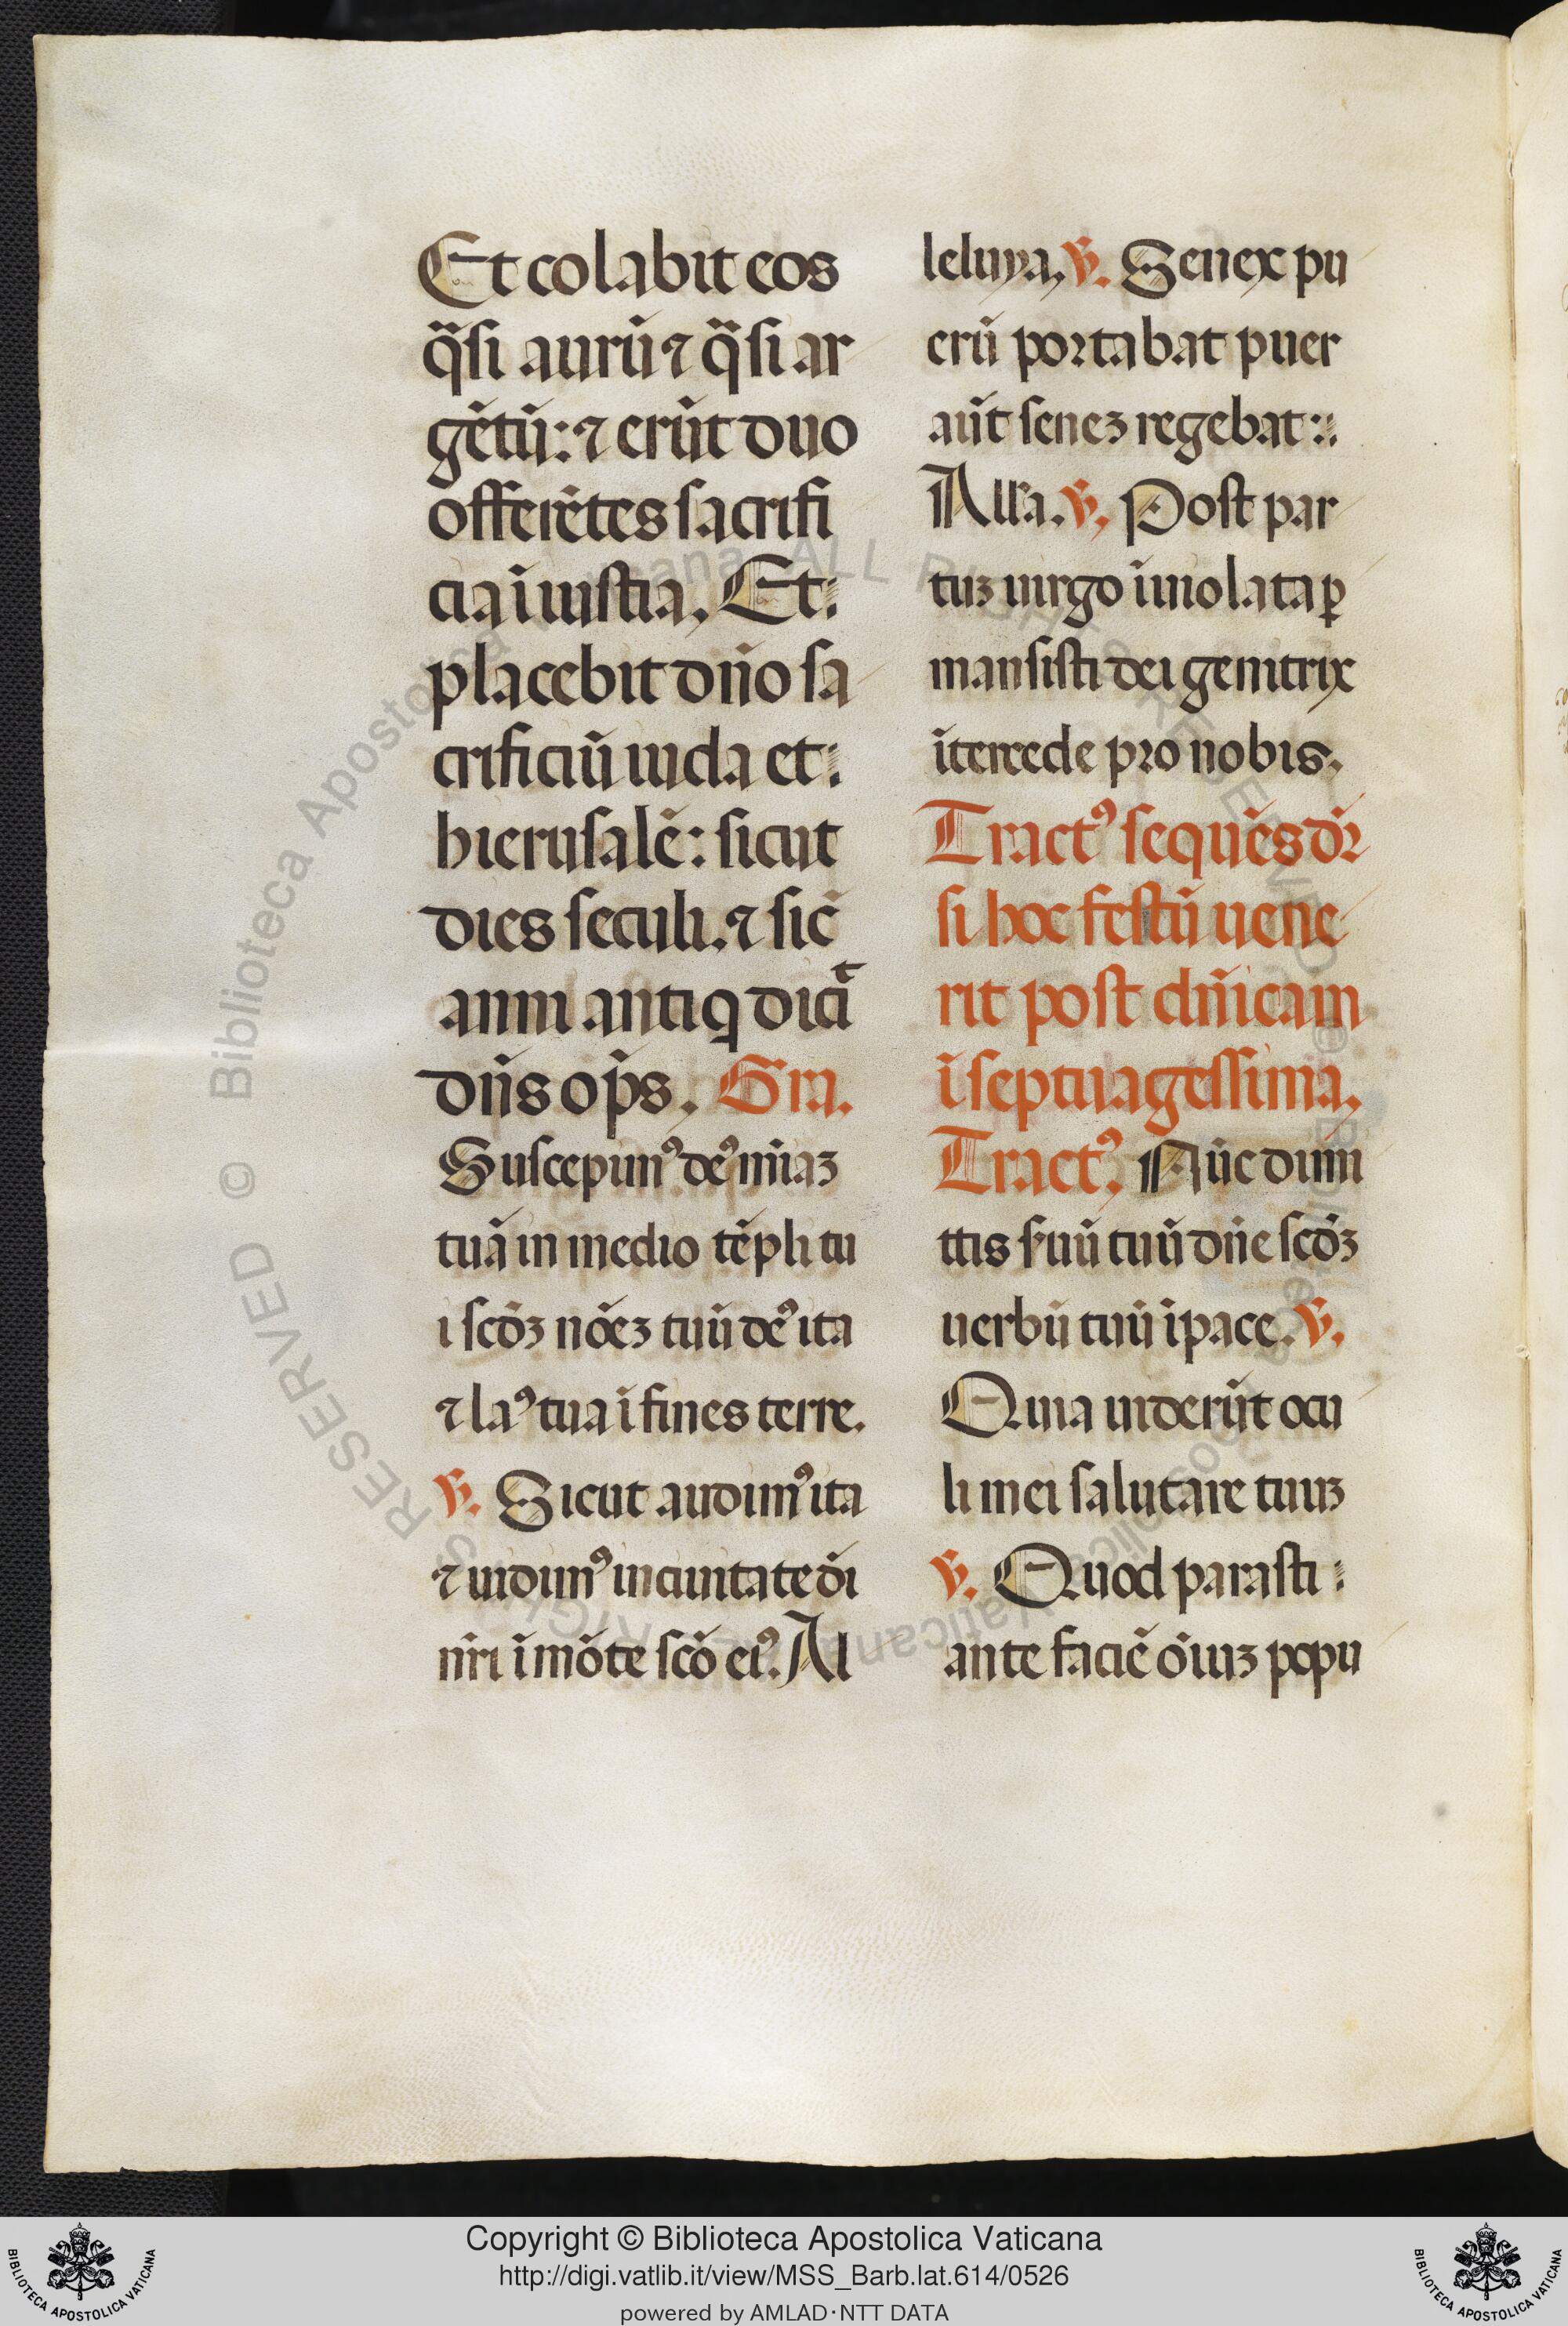 Et colabit eos
q̄si aurū ⁊ q̄si ar
gētū: ⁊ erūt duo
offerētes sacrifi
cia ī iustia. Et:
placebit dn̄o sa
crificiū iuda et:
hierusalē: sicut
dies seculi. ⁊ sic̄
anni antiq dicͭ
dn̄s op̄s. Gra.
Suscepimꝰ deꝰ mīaꝫ
tuā in medio tēpli tu
i scd̄ꝫ nōeꝫ tuū deꝰ ita
⁊ laꝰ tua ī fines terre.
℣. Sicut audiuimꝰ ita
⁊ uidimꝰ in ciuitate dī
nr̄i ī mōte scō eiꝰ. Al
leluya. ℣. Senex pu
erū portabat puer
aūt seneꝫ regebat:
Alla. ℣. Post par
tuꝫ uirgo īuiolata ꝑ
mansisti dei genitrix
ītercede pro nobis.
Tractꝰ sequēs dr̄
si hoc festū uene
rit post dn̄icam
ī septuagessima.
Tractꝰ. Nūc dimi
ttis ẜuū tuū dn̄e scd̄ꝫ
uerbū tuū ī pace. ℣.
Quia uiderūt ocu
li mei salutare tuuꝫ
℣. Quod parasti:
ante faciē ōiuꝫ popu
© Biblioteca Apostolica Vaticana. ALL RIGHTS RESERVED
© Biblioteca Apostolica Vaticana. ALL RIGHTS RESERVED
Copyright © Biblioteca Apostolica Vaticana
http://digi.vatlib.it/view/MSS_Barb.lat.614/0526
powered by AMLAD·NTT DATA
BIBLIOTECA APOSTOLICA VATICANA
BIBLIOTECA APOSTOLICA VATICANA